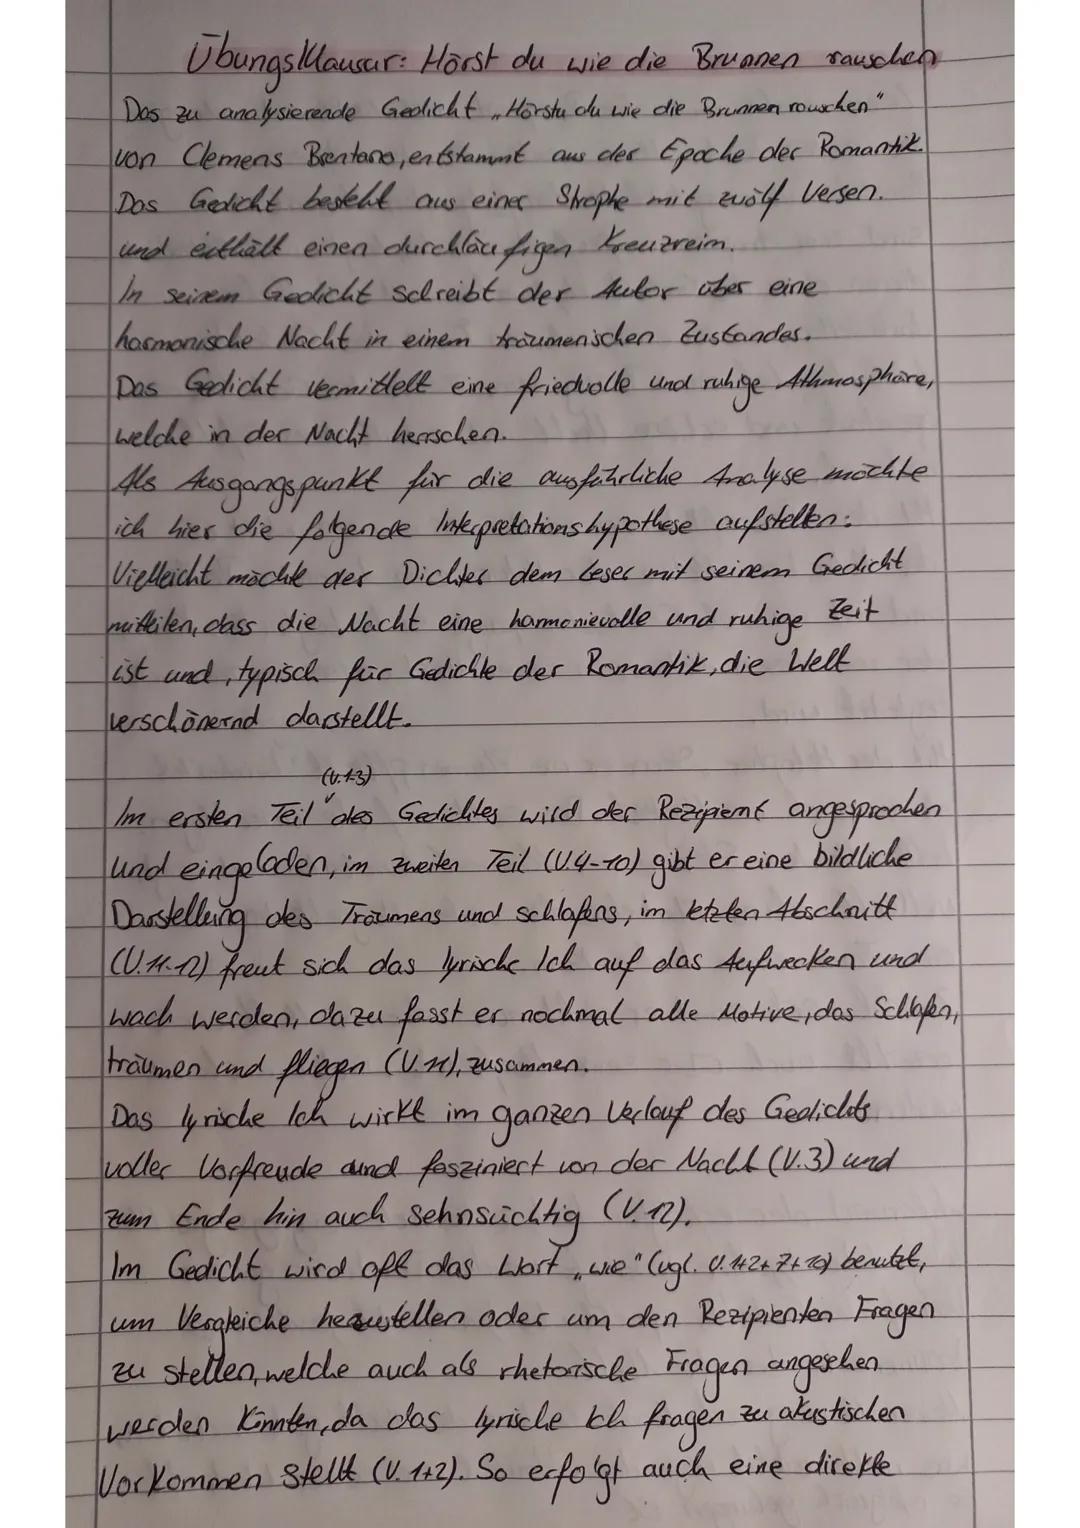 ÜbungsKlausur: Hörst du wie die Brunnen rauschen
Das zu analysierende Gedicht „Hörstu du wie die Brunnen rauschen"
von Clemens Brentano, entstammt aus der Epoche der Romantik.
Das Gedicht besteht aus einer Strophe mit zwölf Versen.
und enthält einen durchläufigen Kreuzreim.
In seinem Gedicht schreibt der Autor über eine
harmonische Nacht in einem träumerischen Zustandes.
Das Gedicht vermittelt eine friedvolle und ruhige Athmosphäre,
welche in der Nacht herrschen.
Als Ausgangspunkt für die ausführliche Analyse möchte
ich hier die folgende Interpretationshypothese aufstellen:
Vielleicht möchte der Dichter dem Leser mit seinem Gedicht
mitteilen, dass die Nacht eine harmonievolle und ruhige Zeit
ist und, typisch für Gedichte der Romantik, die Welt
verschönernd darstellt.
(V.1-3)
Im ersten Teil des Gedichtes wird der Rezipient angesprochen
und eingeladen, im zweiten Teil (V.4-10) gibt er eine bildliche
Darstellung des Träumens und schlafens, im letzten Abschnitt
(V.11-12) freut sich das lyrische Ich auf das Aufwecken und
wach werden, dazu fasst er nochmal alle Motive, das Schlafen,
träumen und fliegen (V.11), zusammen.
Das lyrische Ich wirkt im ganzen Verlauf des Gedichts
voller Vorfreude und fasziniert von der Nacht (V.3) und
zum Ende hin auch sehnsüchtig (V.12).
Im Gedicht wird oft das Wort „wie" (vgl. V.1+2+7+10) benutzt,
um Vergleiche herzustellen oder um den Rezipienten Fragen
zu stellen, welche auch als rhetorische Fragen angesehen
werden könnten, da das lyrische Ich fragen zu akustischen
Vorkommen stellt (V.1+2). So erfolgt auch eine direkte